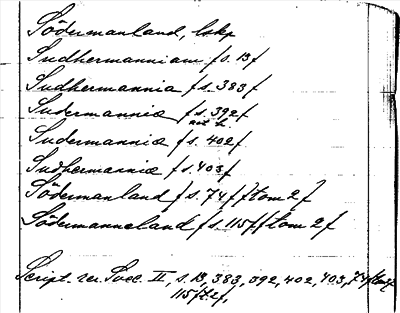 Södermanland, lskp
Sudhermanniam f s. 13 f
Sudhermannia f s. 383 f
Sudermanniæ f s. 392 f
not b.
Sudermanniæ f s. 402 f
Sudhermanniæ f s. 403 f
Södermanland f s. 74 f f tom 2 f
Södermanneland f s. 115 f f tom 2 f
Script. rer. Svec. II, s. 13, 383, 392, 402, 403, 74 f tom 2
115 f t. 2 f,